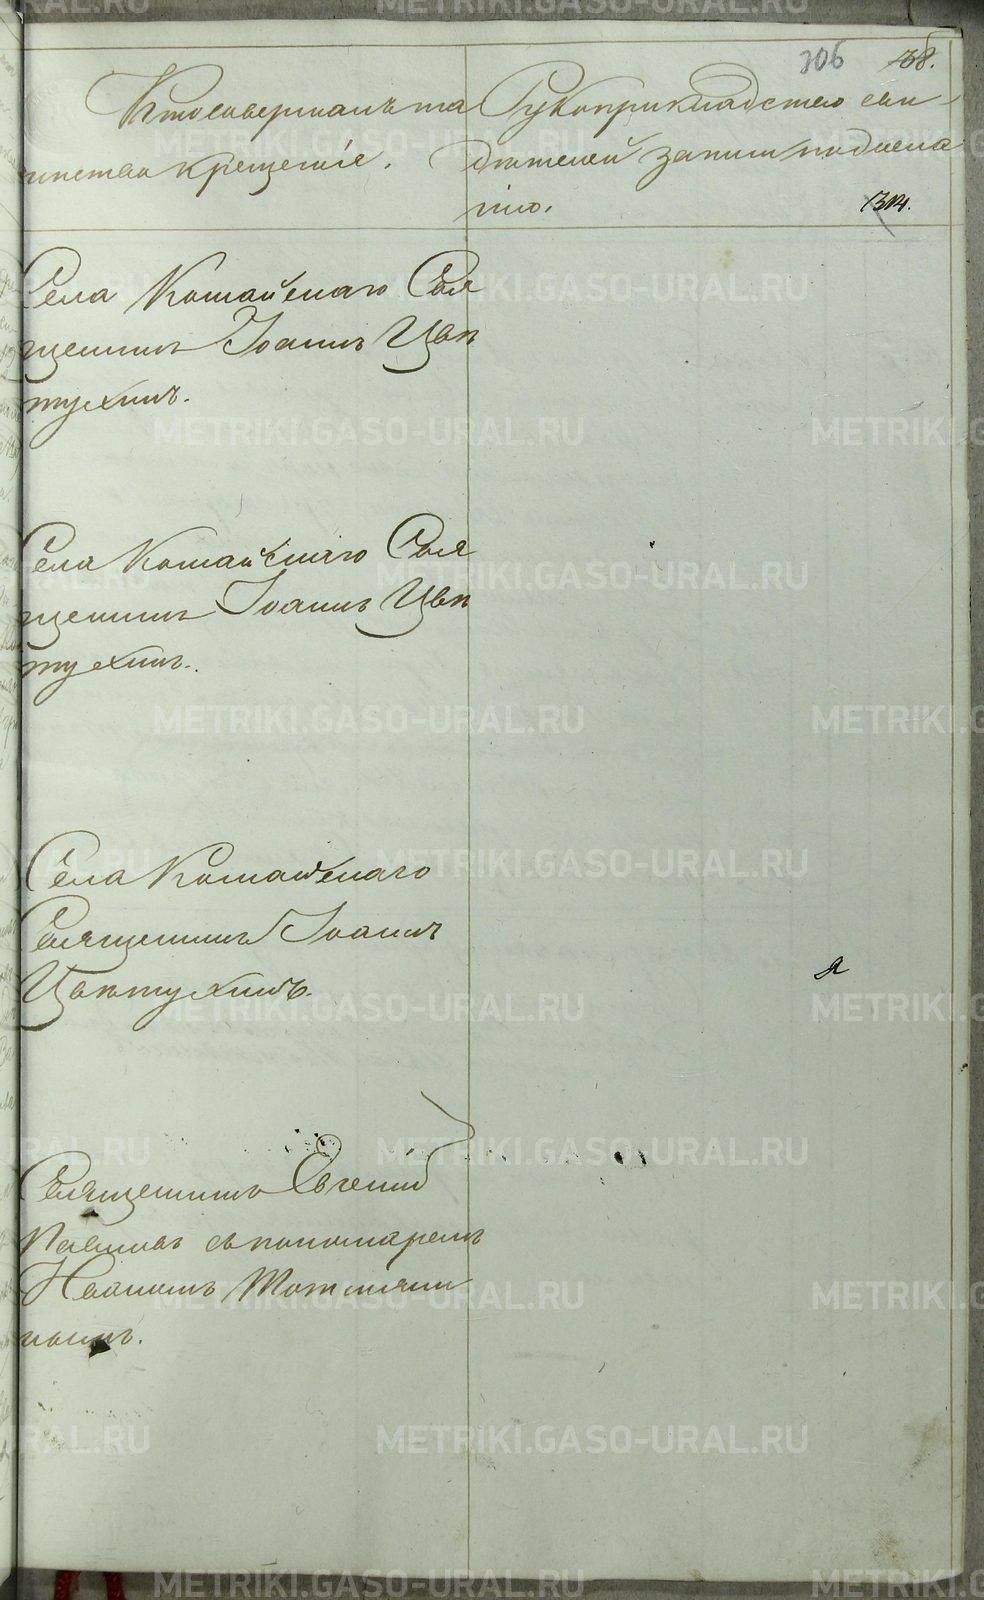 306 38.
Кто совершалъ та
инство крещенiе.
Рукоприкладство сви
дѣтелей записи по жела
нiю.
314.
Села Кошайскаго Свя
щенникъ Iоаннъ Цвѣ
тухинъ.
Села Кошайскаго Свя
щенникъ Iоаннъ Цвѣ
тухинъ.
Села Кошайскаго
Священникъ Iоаннъ
Цвѣтухинъ.
Священникъ Евгенiй
съ пономаремъ
Иваномъ
METRIKI.GASO-URAL.RU